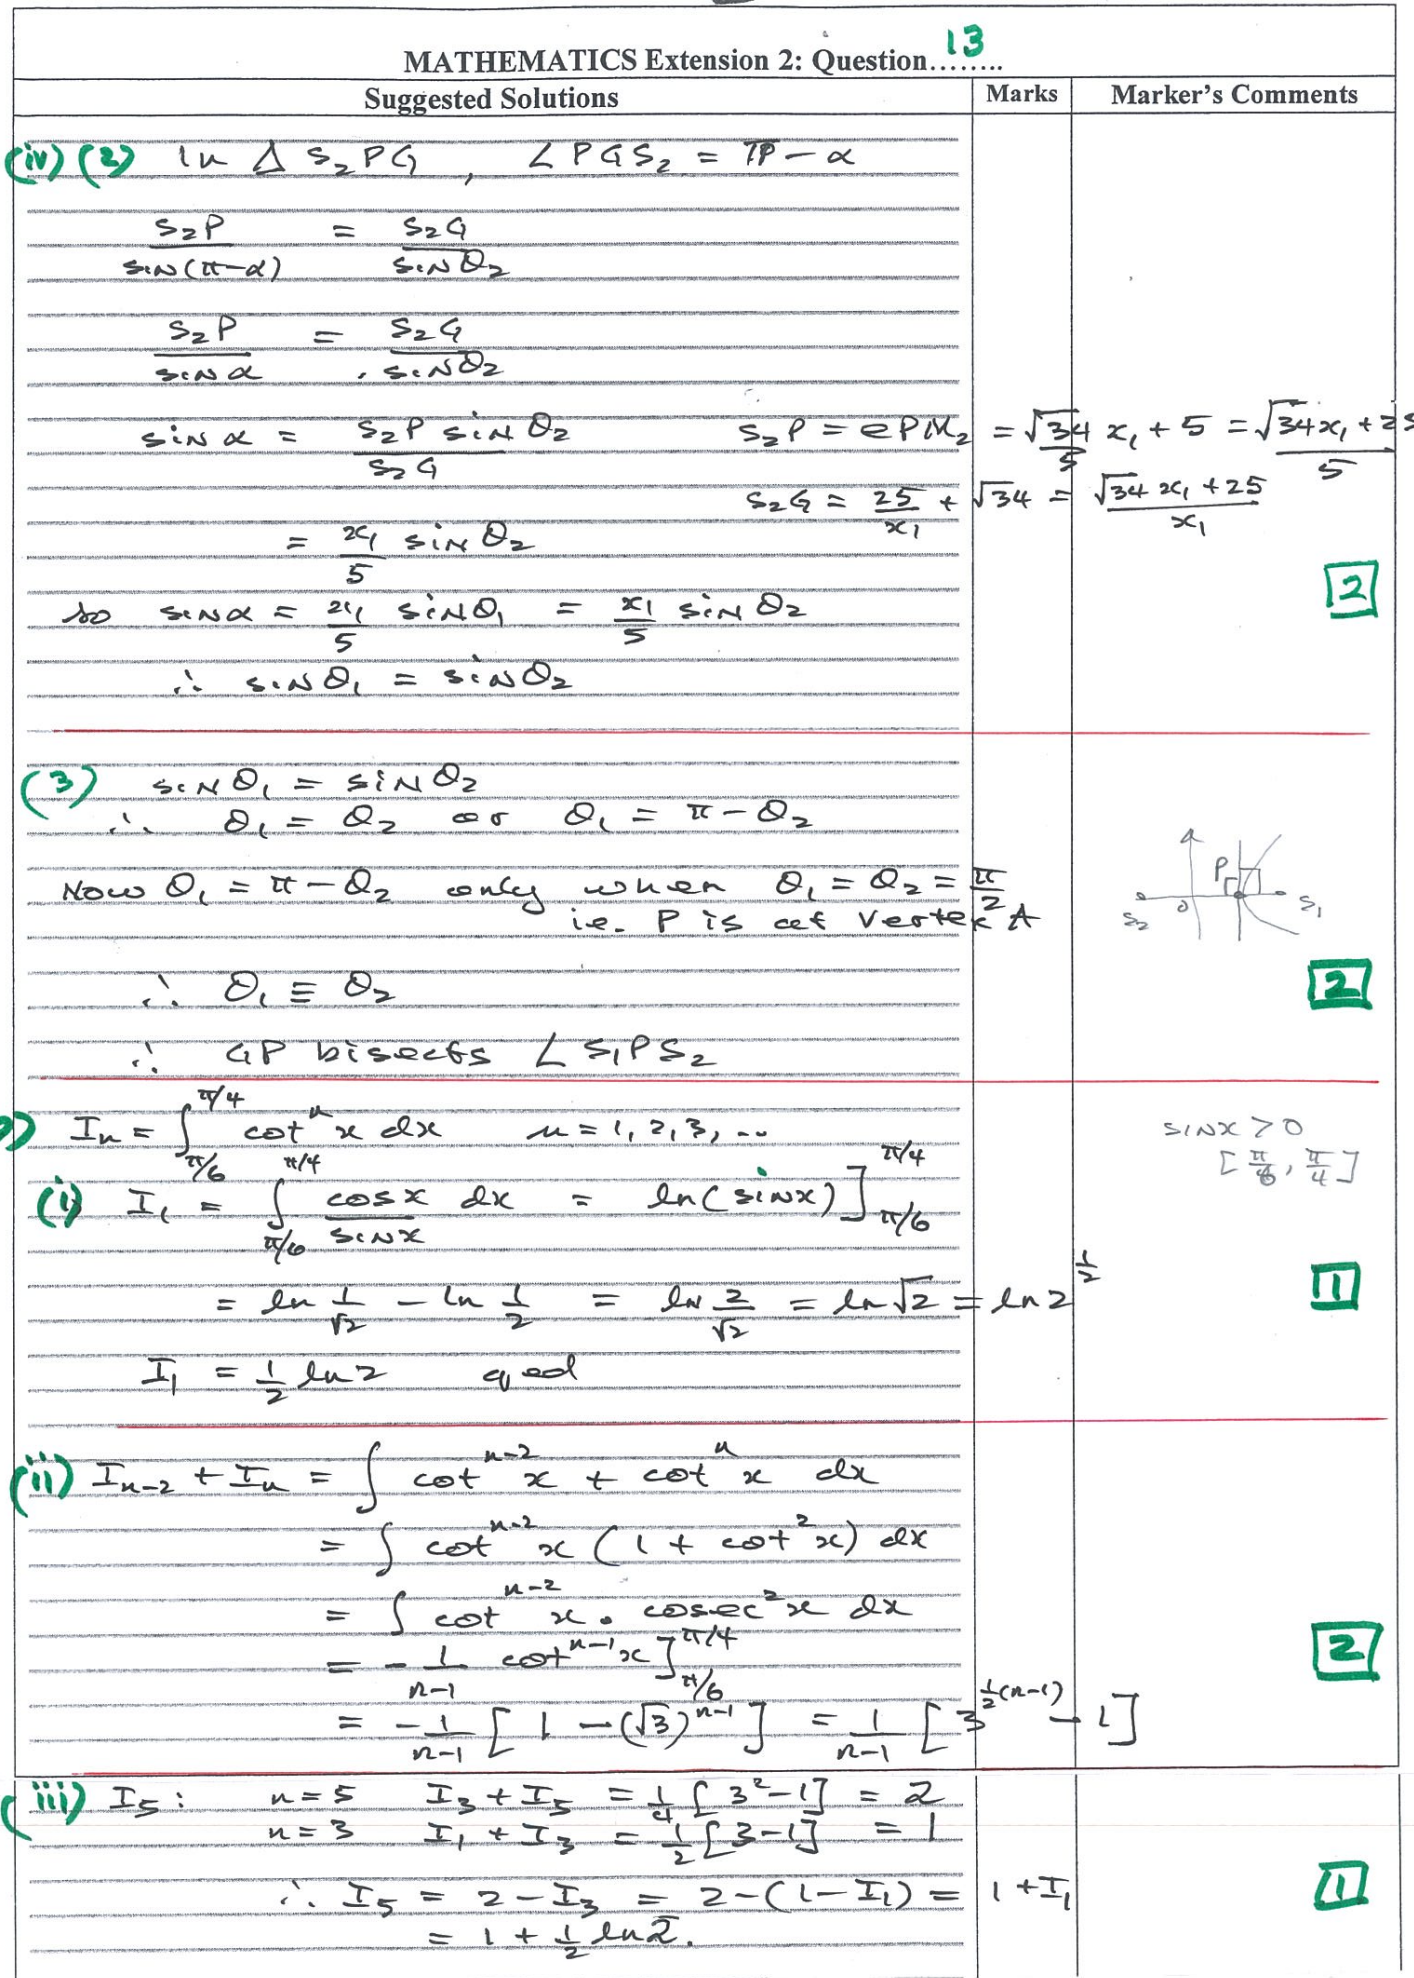 MATHEMATICS Extension 2: Question........ 13
Suggested Solutions Marks Marker's Comments
(iv) (2) In Δ S₂PG, ∠PGS₂ = π − α
S₂P / sin(π−α) = S₂G / sin θ₂
S₂P / sin α = S₂G / sin θ₂
sin α = S₂P sin θ₂ / S₂G S₂P = ePM₂ = √34/5 x₁ + 5 = (√34 x₁ + 25)/5
S₂G = 25/x₁ + √34 = (√34 x₁ + 25)/x₁
= x₁/5 sin θ₂
2
so sin α = x₁/5 sin θ₁ = x₁/5 sin θ₂
∴ sin θ₁ = sin θ₂
(3) sin θ₁ = sin θ₂
∴ θ₁ = θ₂ or θ₁ = π − θ₂
Now θ₁ = π − θ₂ only when θ₁ = θ₂ = π/2
i.e. P is at vertex A
P S₂ 0 S₁
∴ θ₁ ≡ θ₂
2
∴ GP bisects ∠S₁PS₂
Iₙ = ∫_{π/6}^{π/4} cotⁿ x dx n = 1, 2, 3, ...
sin x > 0
[π/6, π/4]
(i) I₁ = ∫_{π/6}^{π/4} cos x / sin x dx = ln(sin x)]_{π/6}^{π/4}
= ln 1/√2 − ln 1/2 = ln 2/√2 = ln √2 = ln 2^{1/2}
1
I₁ = 1/2 ln 2 qed
(ii) Iₙ₋₂ + Iₙ = ∫ cotⁿ⁻² x + cotⁿ x dx
= ∫ cotⁿ⁻² x (1 + cot² x) dx
= ∫ cotⁿ⁻² x . cosec² x dx
= −1/(n−1) cotⁿ⁻¹ x]_{π/6}^{π/4}
2
= −1/(n−1) [1 − (√3)ⁿ⁻¹] = 1/(n−1) [3^{½(n−1)} − 1]
(iii) I₅: n = 5 I₃ + I₅ = 1/4 [3² − 1] = 2
n = 3 I₁ + I₃ = 1/2 [3 − 1] = 1
∴ I₅ = 2 − I₃ = 2 − (1 − I₁) = 1 + I₁
1
= 1 + 1/2 ln 2.